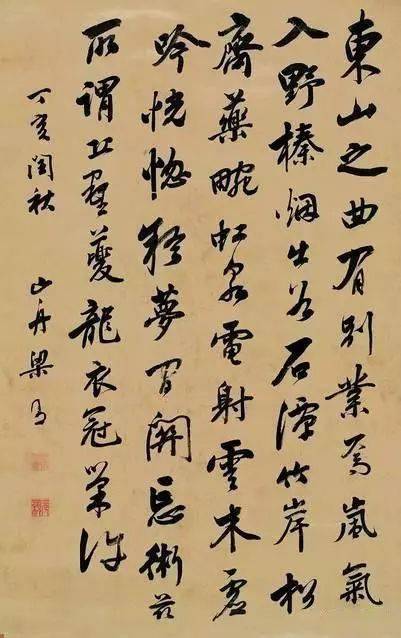 東山之曲有別業焉嵐氣
入野榛烟出谷石潭竹岸松
齋藥畹虹泉電射雲木虛
吟恍惚疑夢間關忘術茲
所謂丘壑夔龍衣冠巢許
丁亥閏秋 山舟梁同書